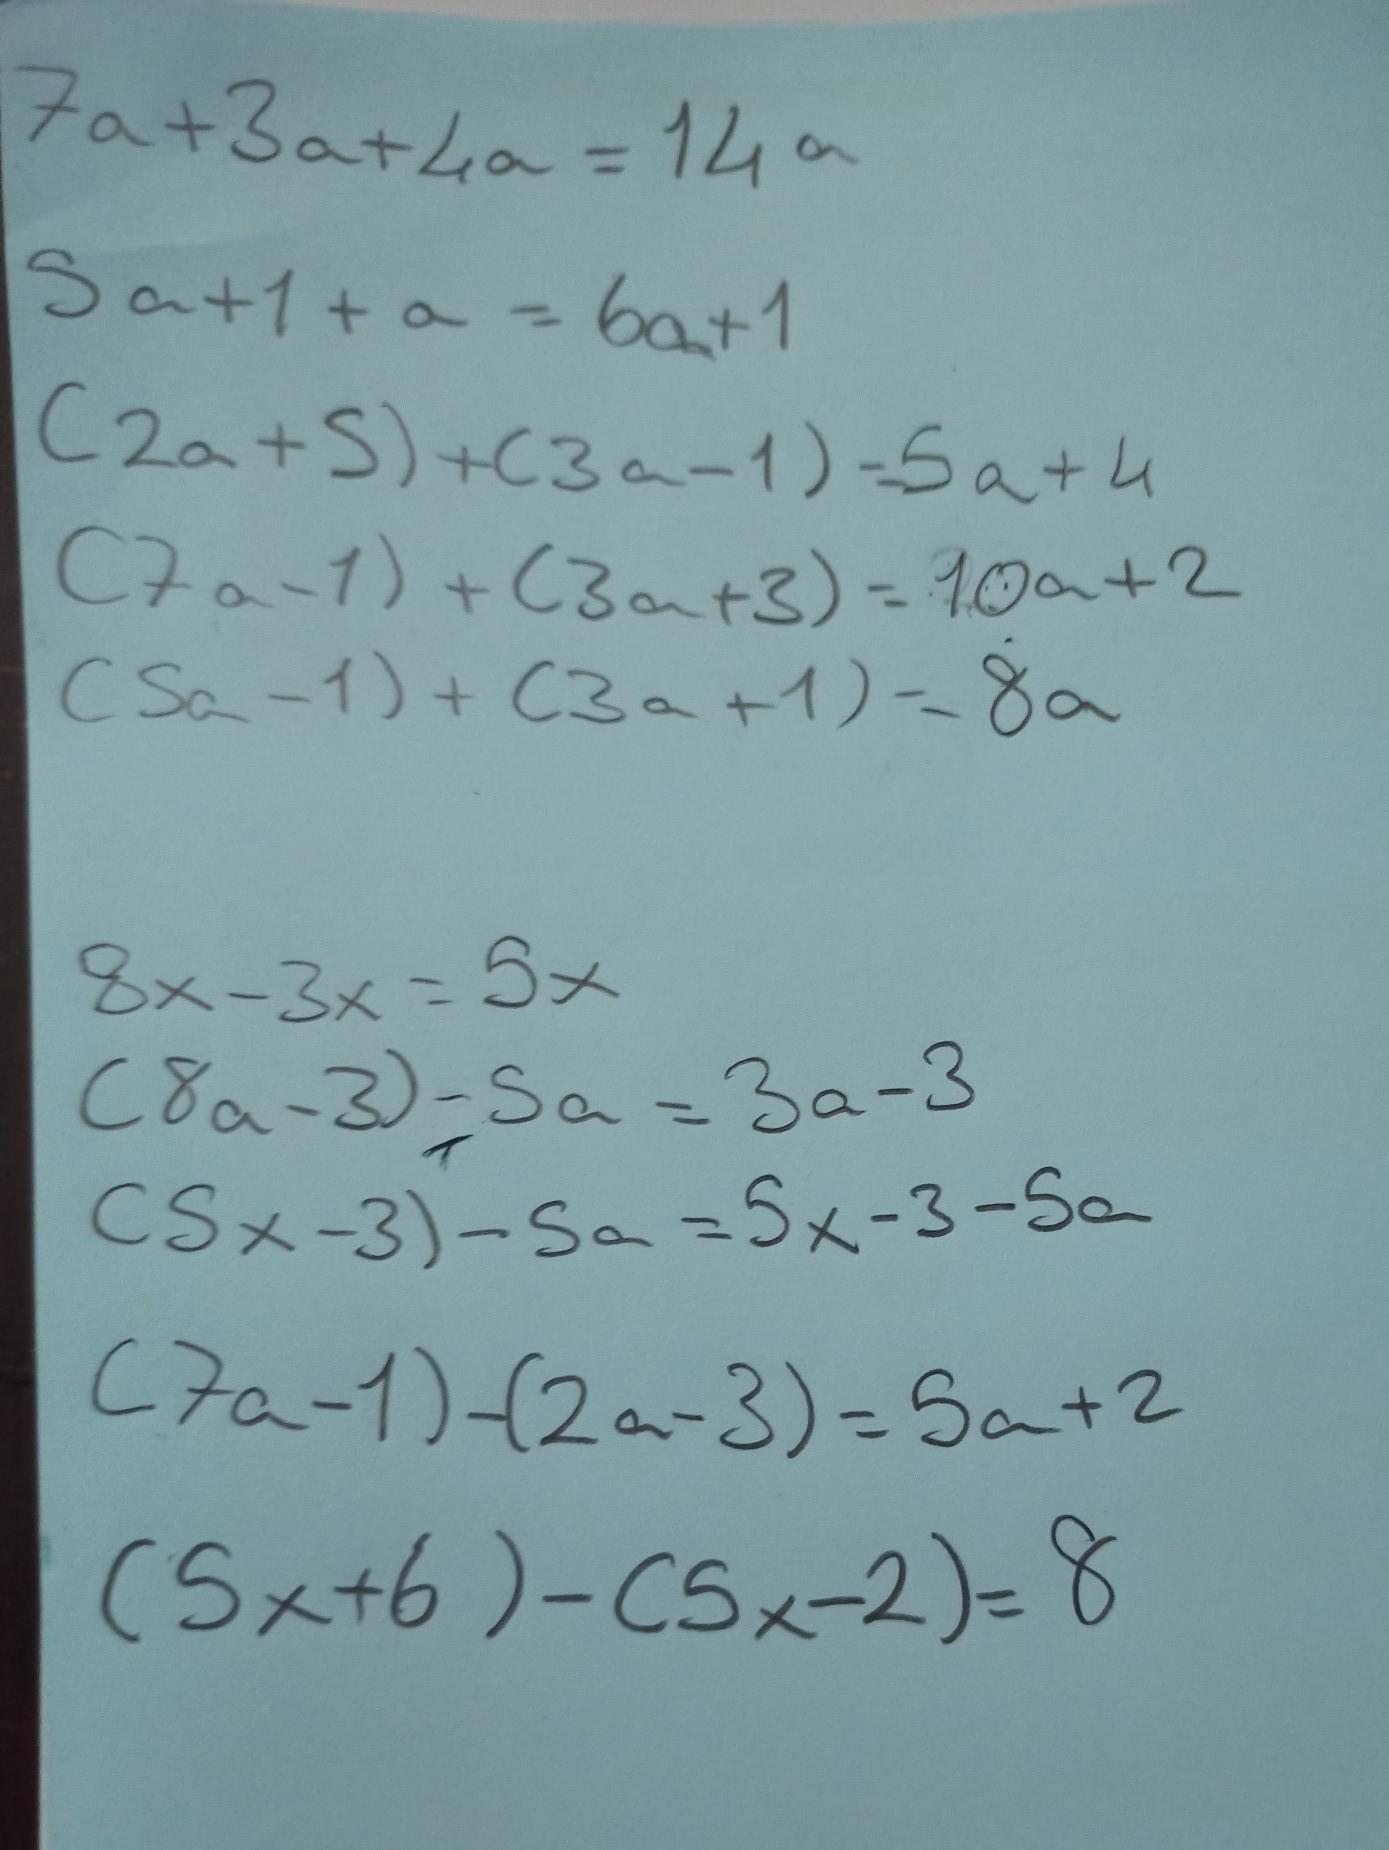 7a+3a+4a=14a
5a+1+a=6a+1
(2a+5)+(3a-1)=5a+4
(7a-1)+(3a+3)=10a+2
(5a-1)+(3a+1)=8a
8x-3x=5x
(8a-3)-5a=3a-3
(5x-3)-5a=5x-3-5a
(7a-1)-(2a-3)=5a+2
(5x+6)-(5x-2)=8